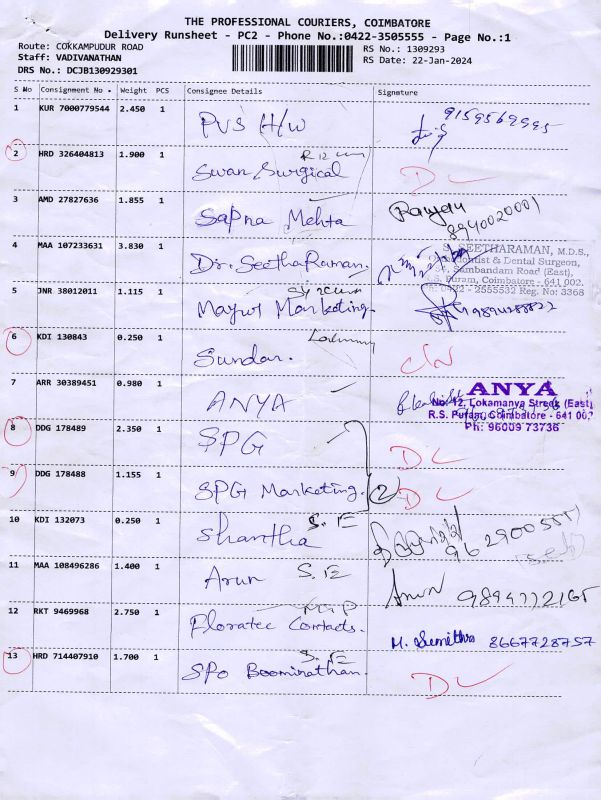 THE PROFESSIONAL COURIERS, COIMBATORE
Delivery Runsheet - PC2 - Phone No.:0422-3505555 - Page No.:1
Route: COKKAMPUDUR ROAD
Staff: VADIVANATHAN
DRS No.: DCJB130929301
RS No.: 1309293
RS Date: 22-Jan-2024
S No Consignment No Weight PCS Consignee Details Signature
1 KUR 7000779544 2.450 1 PVS H/W 9159569995
2 HRD 326404813 1.900 1 Swan Surgical DL
3 AMD 27827636 1.855 1 Sapna Mehta 8940020001
4 MAA 107233631 3.830 1 Dr. SeethaRaman.
SEETHARAMAN, M.D.S.,
& Dental Surgeon,
Sambandam Road (East),
Puram, Coimbatore - 641 002.
2555532 Reg. No: 3368
5 JNR 38012011 1.115 1 Marketing.
6 KDI 130843 0.250 1 Sundar.
7 ARR 30389451 0.980 1 ANYA
ANYA
No: 12, Lokamanya Street (East)
R.S. Puram, Coimbatore - 641 002
Ph: 96009 73736
8 DDG 178489 2.350 1 SPG DL
9 DDG 178488 1.155 1 SPG Marketing. 2 DL
10 KDI 132073 0.250 1 Shantha S. IE
11 MAA 108496286 1.400 1 Arun S. IE Arun
12 RKT 9469968 2.750 1 Floratec Contacts. M. Sumithra 8667728757
13 HRD 714407910 1.700 1 SPO Boominathan. S. IE DL